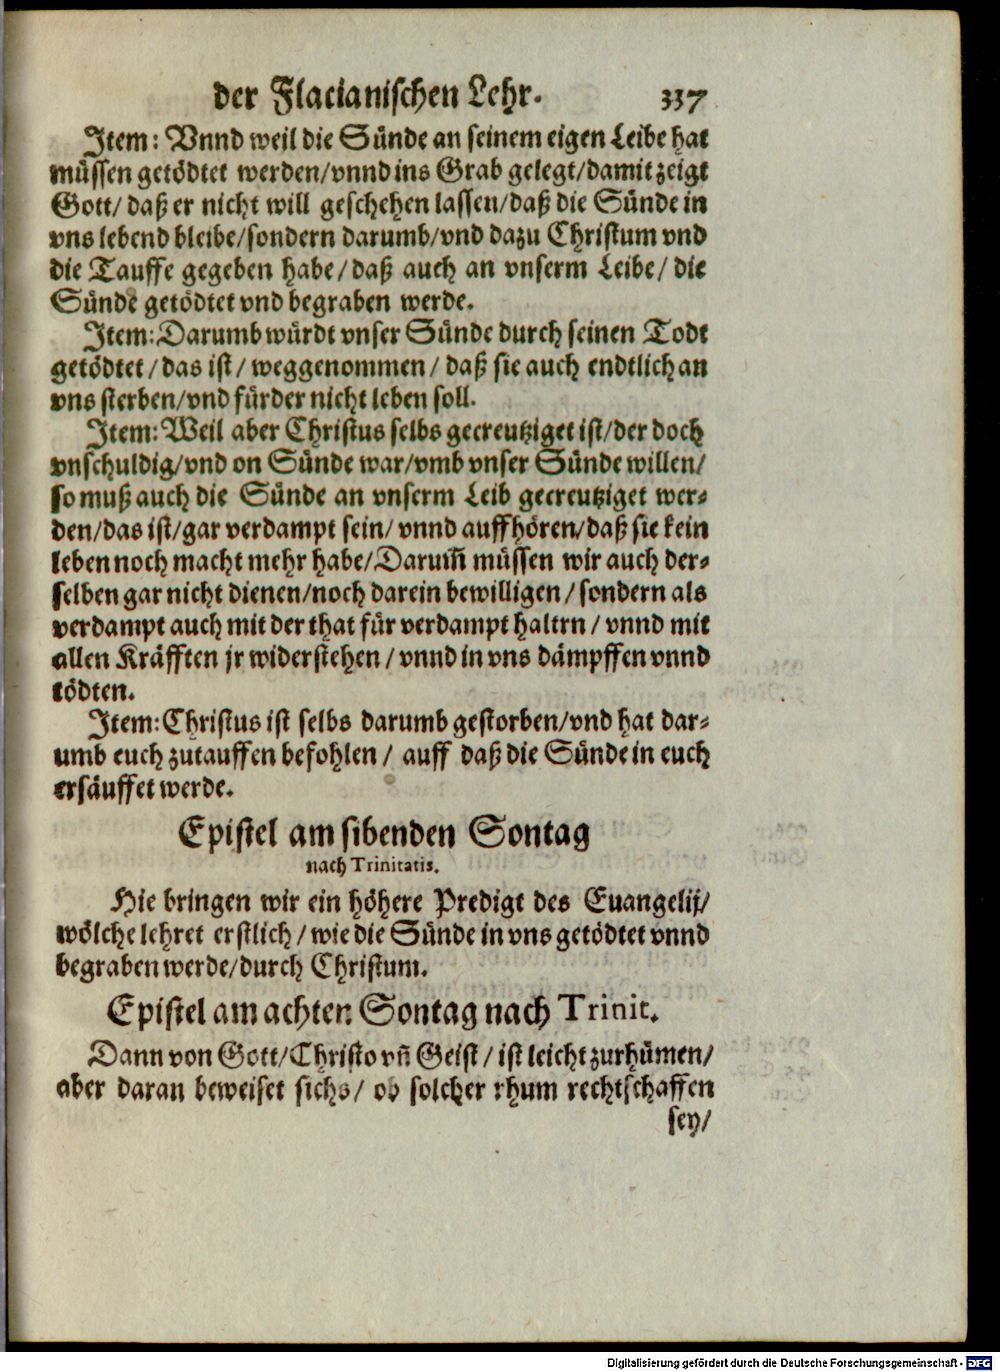 der Flacianischen Lehr. 337
Item: Vnnd weil die Sünde an seinem eigen Leibe hat
müssen getödtet werden/vnnd ins Grab gelegt/damit zeigt
Gott/ daß er nicht will geschehen lassen/daß die Sünde in
vns lebend bleibe/sondern darumb/vnd dazu Christum vnd
die Tauffe gegeben habe/daß auch an vnserm Leibe/ die
Sünde getödtet vnd begraben werde.
Item: Darumb würdt vnser Sünde durch seinen Todt
getödtet/das ist/ weggenommen/ daß sie auch endtlich an
vns sterben/vnd fürder nicht leben soll.
Item: Weil aber Christus selbs gecreutziget ist/der doch
vnschuldig/vnd on Sünde war/vmb vnser Sünde willen/
so muß auch die Sünde an vnserm Leib gecreutziget wer-
den/das ist/gar verdampt sein/ vnnd auffhören/daß sie kein
leben noch macht mehr habe/Darum̃ müssen wir auch der-
selben gar nicht dienen/noch darein bewilligen/sondern als
verdampt auch mit der that für verdampt haltrn/ vnnd mit
allen Kräfften jr widerstehen/ vnnd in vns dämpffen vnnd
tödten.
Item: Christus ist selbs darumb gestorben/vnd hat dar-
umb euch zutauffen befohlen/ auff daß die Sünde in euch
ersäuffet werde.
Epistel am sibenden Sontag
nach Trinitatis.
Hie bringen wir ein höhere Predigt des Euangelij/
wölche lehret erstlich/wie die Sünde in vns getödtet vnnd
begraben werde/durch Christum.
Epistel am achten Sontag nach Trinit.
Dann von Gott/Christo vñ Geist/ ist leicht zurhümen/
aber daran beweiset sichs/ ob solcher rhum rechtschaffen
sey/
Digitalisierung gefördert durch die Deutsche Forschungsgemeinschaft - DFG